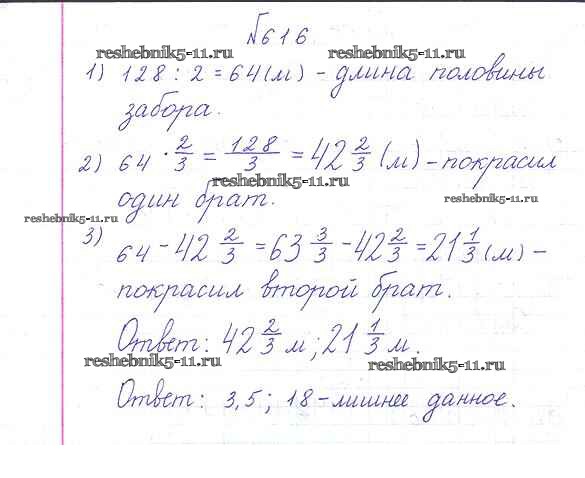 №616.
reshebnik5-11.ru reshebnik5-11.ru
1) 128 : 2 = 64 (м) - длина половины
забора.
2) 64 · 2/3 = 128/3 = 42 2/3 (м) - покрасил
reshebnik5-11.ru
один брат.
reshebnik5-11.ru
reshebnik5-11.ru
3) 64 - 42 2/3 = 63 3/3 - 42 2/3 = 21 1/3 (м) -
покрасил второй брат.
Ответ: 42 2/3 м; 21 1/3 м.
reshebnik5-11.ru reshebnik5-11.ru
Ответ: 3,5; 18 - лишнее данное.